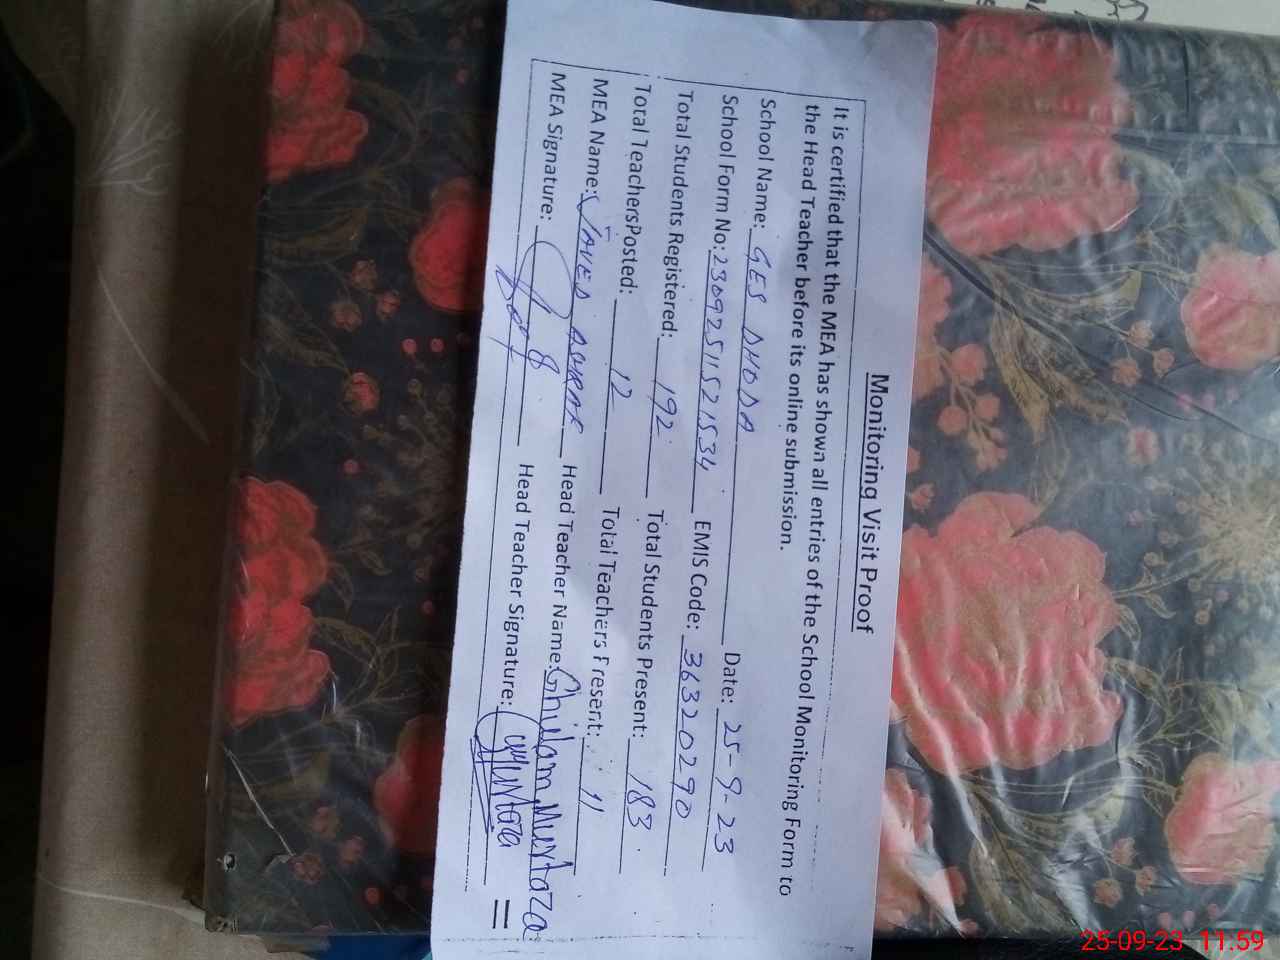 Monitoring Visit Proof
It is certified that the MEA has shown all entries of the School Monitoring Form to
the Head Teacher before its online submission.
School Name: GES DHODA Date: 25-9-23
School Form No: 23092511521534 EMIS Code: 36320290
Total Students Registered: 192 Total Students Present: 183
Total TeachersPosted: 12 Total Teachers Present: 11
MEA Name: JAVED ASHRAF Head Teacher Name: Ghulam Murtaza
MEA Signature: Head Teacher Signature:
25-09-23 11:59